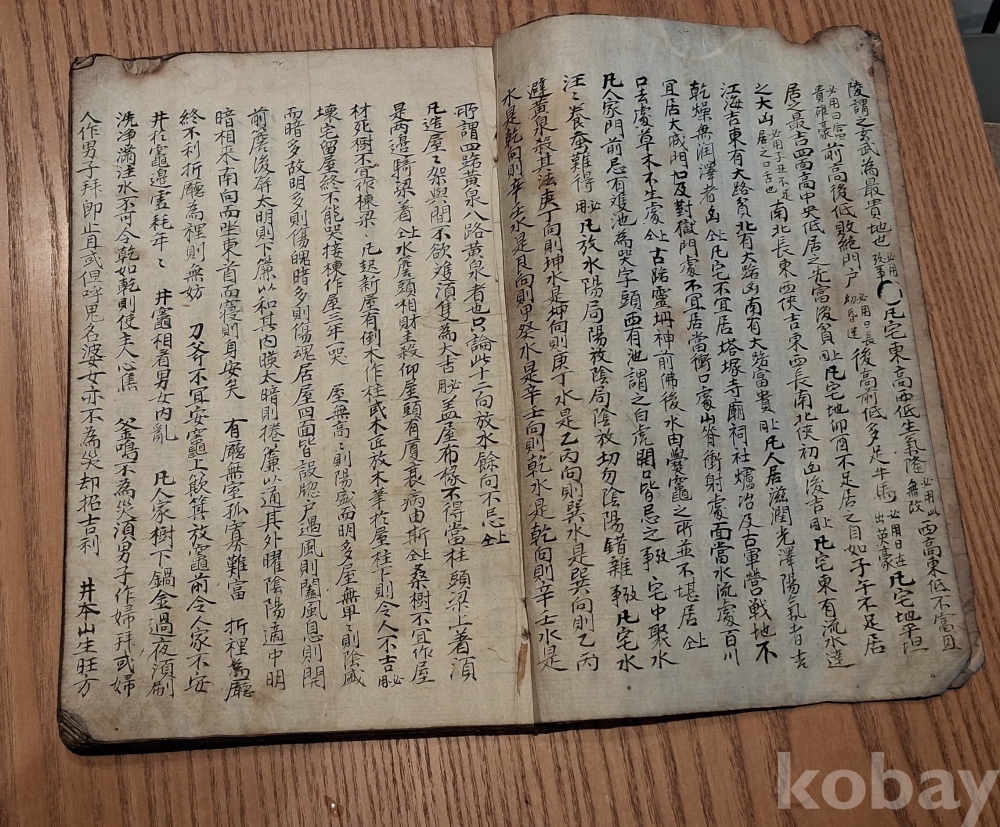 陵謂之玄武為最貴地也 必用 攷事 ○凡宅東高西低生氣隆 必用此 無改 西高東低不富且
貴雄豪 必用曰富 前高後低敗絕門户 必用曰長幼昏迷 後高前低多足牛馬 必用曰世出英豪 凡宅地平坦
居之最吉四面高中央低居之先富後貧 上 凡宅地卯酉不足居之自如子午不足居
之大凶 必用子丑不足居之口舌也 南北長東西狹吉東西長南北狹初凶後吉 上 凡宅東有流水達
江海吉東有大路貧北有大路凶南有大路富貴 上 凡人居滋潤光澤陽氣者吉
乾燥無润澤者凶 仝上 凡宅不宜居當衝口處山脊衝射處面當水流處百川
宜居大城門口及對獄門處不宜居塔塚寺廟祠社爐冶及古軍營戰地不
口去處草木不生處 仝上 古路靈坍神前佛後水田爨竈之所並不堪居 仝上
凡人家門前忌有雙池為哭字頭西有池謂之白虎開口皆忌之 事 宅中聚水
汪汪養蚕難得 必用 凡放水陽局陽放陰局陰放切勿陰陽錯雜 事 凡宅水
避黃泉殺其法庚丁向則坤水是坤向則庚丁水是乙丙向則巽水是巽向則乙丙
水是乾向則辛壬水是艮向則甲癸水是辛壬向則乾水是乾向則辛壬水是
所謂四路黃泉八路黃泉者也只論此十二向放水餘向不忌 仝上
凡造屋屋架與間不欲隻須隻為大吉 必用 盖屋布椽不得當柱頭梁上著須
是两邊騎梁著 仝上 水廔頭相財主殺仰屋頭有厦衰病由斯 仝上 蚕樹不宜作屋
材死樹不宜作棟梁 凡起新屋有倒木作柱或木匠放木筆於屋柱下則令人不吉 必用
壞宅留屋終不能哭接棟作屋三年一哭 屋無高高則陽盛而明多屋無卑卑則陰盛
而暗多故明多則傷魄暗多則傷魂居屋四面皆設窓户遇風則闔風息則開
前簾後屏太明則下簾以和其內暎太暗則捲簾以通其外曜陰陽適中明
暗相来南向而坐東首而寝則身安矣 有廳無室孤寡難富 折裡為廳
終不利折廳為裡則無妨 刀斧不宜安竈上簸箕放竈前令人家不安
井於竈邊虛耗年年 井竈相看男女內亂 凡人家樹下鍋釜過夜須刷
洗净滿注水不可令乾如乾則使主人心焦 釜鳴不為災須男子作婦拜或婦
人作男子拜即止且或但呼鬼名婆女亦不為災却招吉利 井在山生旺方